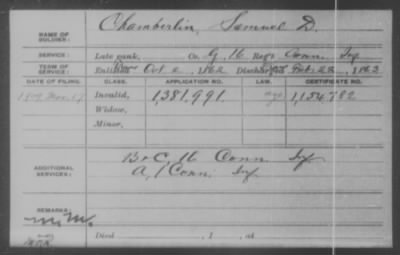 NAME OF SOLDIER: Chamberlin, Samuel D.
SERVICE: Late rank, Co. G, 16 Reg't Conn. Inf.
TERM OF SERVICE: Enlisted Oct 2, 1862 Discharged Feb. 28, 1863
DATE OF FILING. CLASS. APPLICATION NO. LAW. CERTIFICATE NO.
Invalid, 1,381,991 1,154,782
Widow,
Minor,
ADDITIONAL SERVICES: B & C, 16 Conn. Inf.
A, 1 Conn. Inf.
REMARKS:
Died , 1 , at